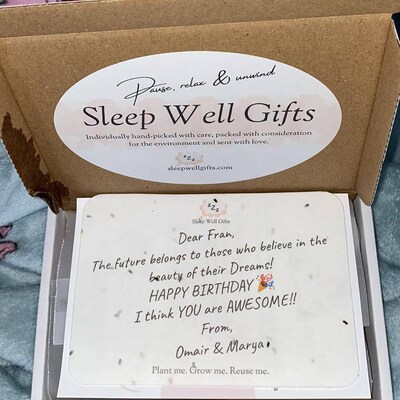 Pause, relax & unwind
Sleep Well Gifts
Individually hand-picked with care, packed with consideration
for the environment and sent with love.
zZz
sleepwellgifts.com
zZz
Sleep Well Gifts
Dear Fran,
The future belongs to those who believe in the
beauty of their Dreams!
HAPPY BIRTHDAY 🎉
I think YOU are AWESOME!!
From,
Omair & Marya
Plant me. Grow me. Reuse me.